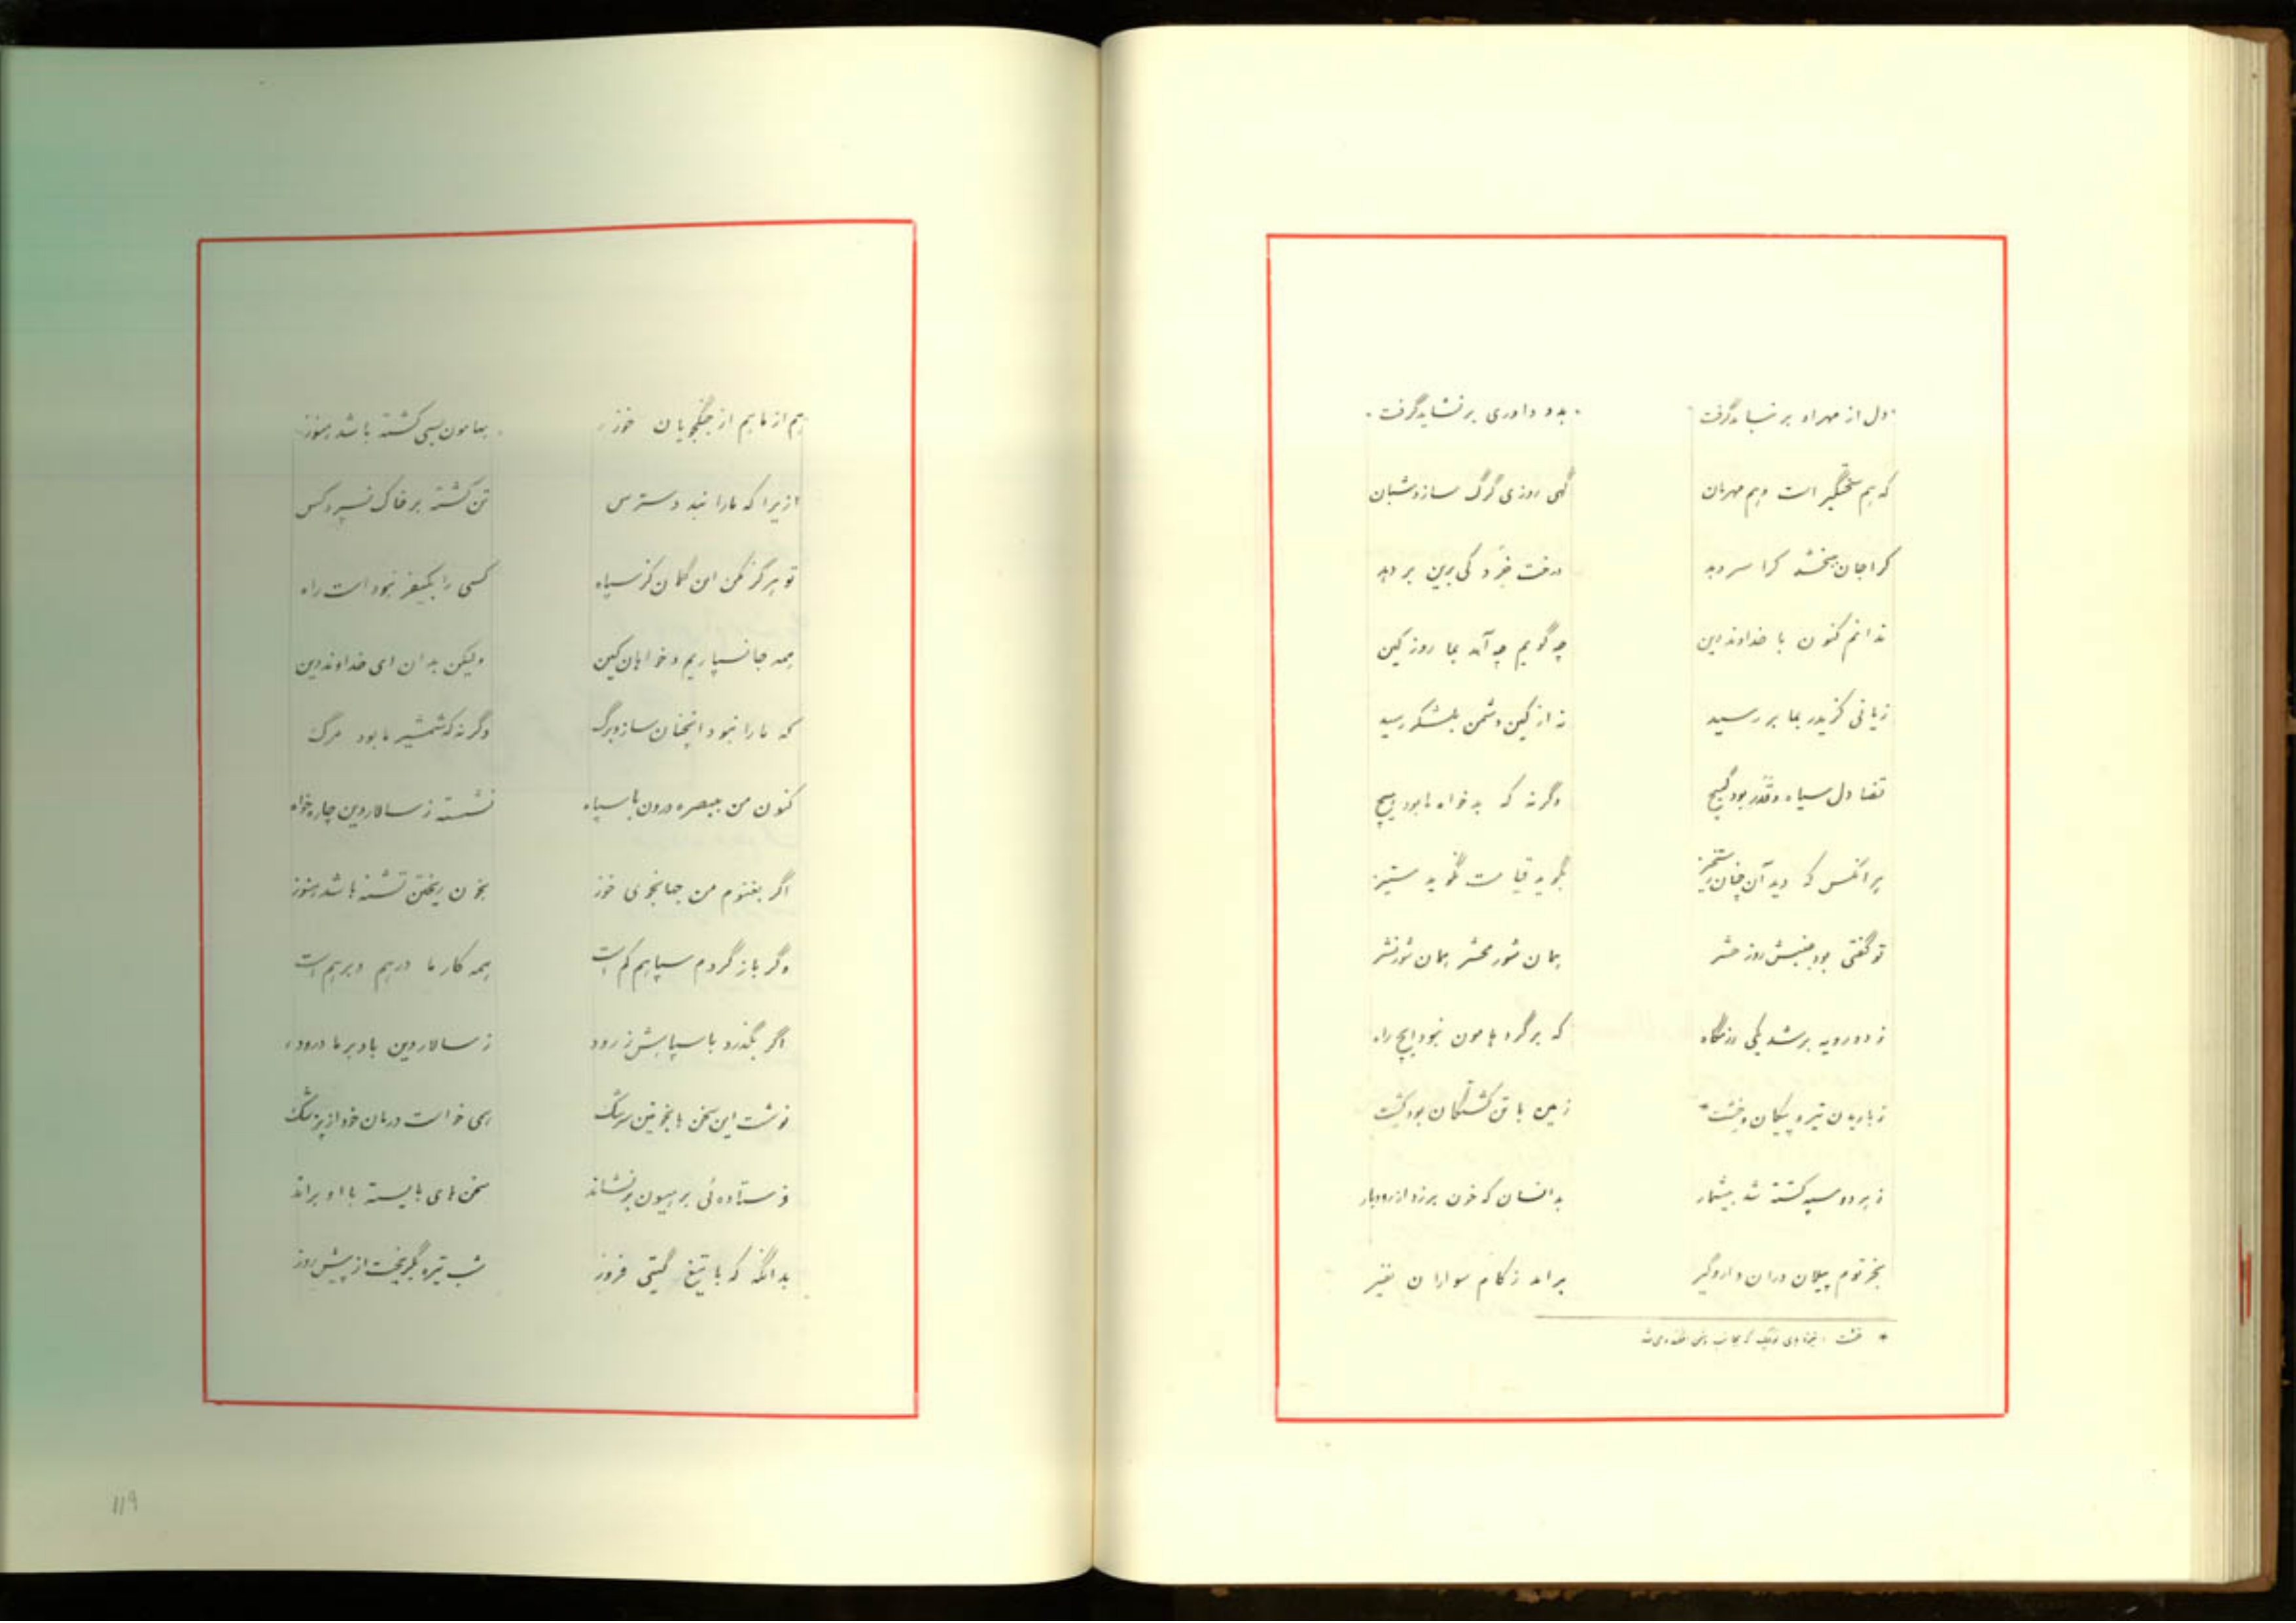 دل از مهر او بر نباید گرفت    بدو داوری بر نشاید گرفت
که هم سختگیر است و هم مهربان    گهی روزی گرگ سازد شبان
کرا جان ببخشد کرا سر دهد    درخت خرد کی برین بر دهد
ندانم کنون با خداوند دین    چه گویم چه آمد بما روز کین
زیانی کزیدر بما بر رسید    نه از کین دشمن بلشکر رسید
قضا دل سیاه و قدر بود گیج    وگرنه که بدخواه ما بود هیچ
هر آنکس که دید آن چنان رستخیز    بگوید قیامت نگوید ستیز
تو گفتی بود جنبش روز حشر    همان شور محشر همان شور نشر
ز دو رویه بر شد یکی رزمگاه    که بر گرد هامون نبود ایچ راه
ز باریدن تیر و پیکان و خشت*    زمین با تن کشتگان بود کشت
ز هر دو سپه کشته شد بیشمار    بدانسان که خون برزد از رودبار
بخرتوم پیلان دران داروگیر    برآمد ز کام سواران نفیر
* خشت :
هم از ما هم از جنگجویان خوز    بهامون بسی کشته باشد هنوز
ازیرا که ما را نبد دسترس    تن کشته بر خاک نسپرد کس
تو هرگز مکن این گمان کز سپاه    کسی را بکیفر نبود است راه
همه جانسپاریم و خواهان کین    ولیکن بدان ای خداوند دین
که ما را نبود انچنان ساز و برگ    وگرنه که شمشیر ما بود مرگ
کنون من ببصره درون با سپاه    نشسته ز سالار دین چاره خواه
اگر بغنوم من جهانجوی خوز    بخون ریختن تشنه باشد هنوز
وگر باز گردم سپاهم کم است    همه کار ما درهم و برهم است
اگر بگذرد با سپاهش ز رود    ز سالار دین باد بر ما درود
نوشت این سخن با بخونین سرشک    همی خواست درمان خود از پزشک
فرستاده ئی بر هیون برنشاند    سخن های بایسته با او براند
بدانگه که با تیغ گیتی فروز    شب تیره بگریخت از پیش روز
119